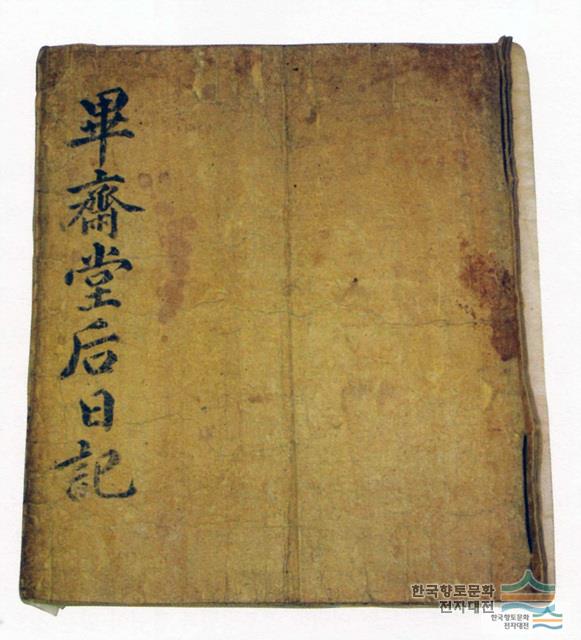 畢齋堂后日記
한국향토문화
전자대전
한국향토문화
전자대전